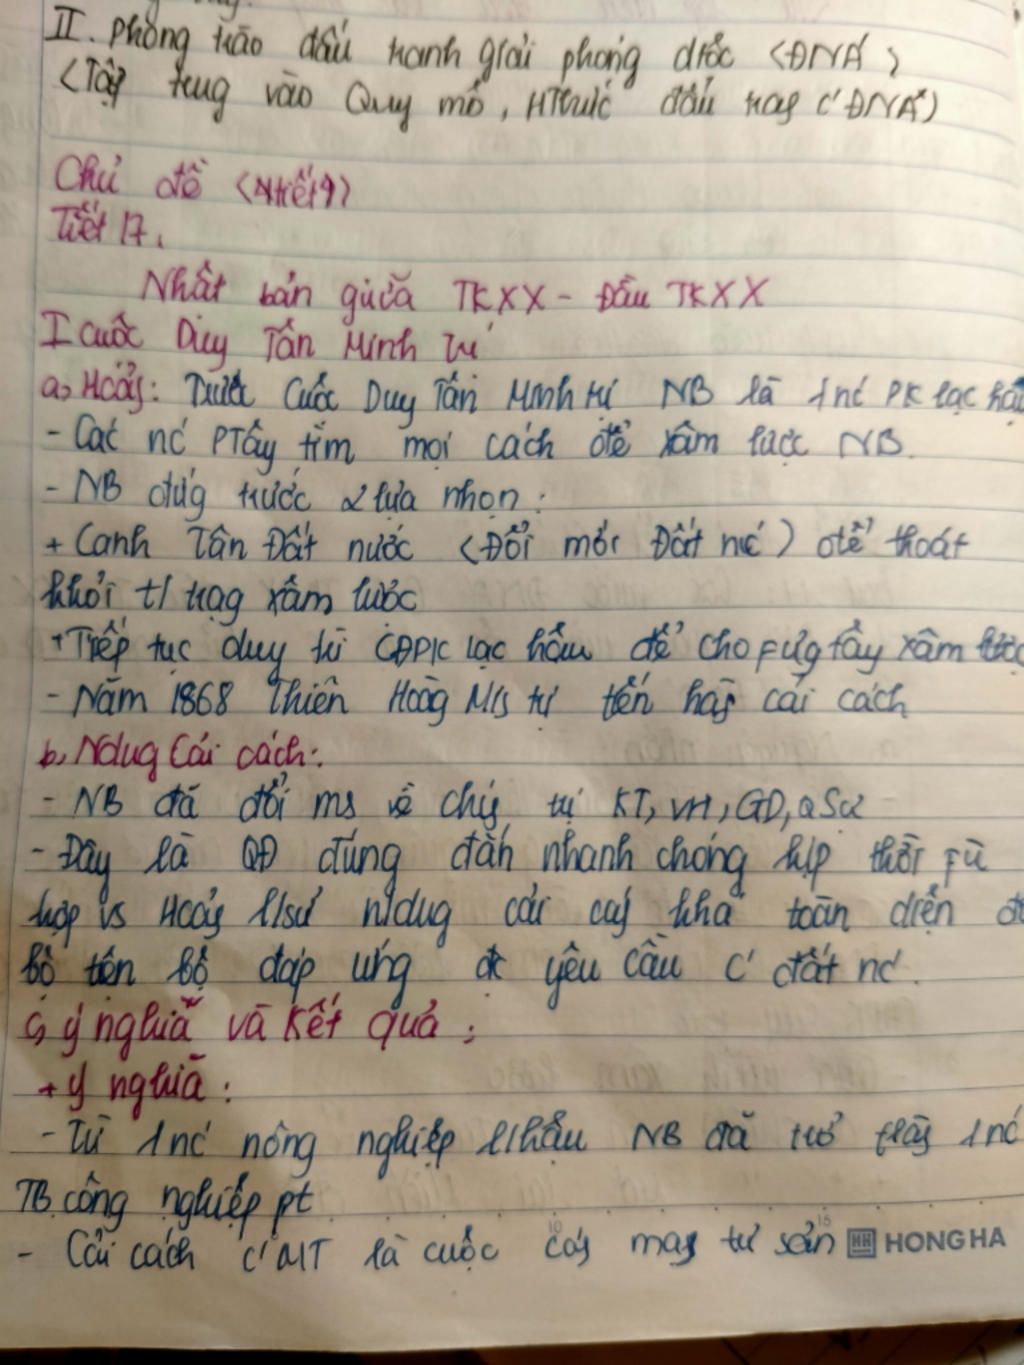 II. Phong trào đấu tranh giải phóng dtộc (ĐNÁ)
(Tập trug vào Quy mô, HThức đấu trag c' ĐNÁ)
Chủ đề (4tiết)
Tiết 17.
Nhật bản giữa TKXX - Đầu TKXX
I cuốc Duy Tân Minh Trị
a, Hcảh: Trước Cuốc Duy Tân Minh trị NB là 1 nc PK lạc hậu
- Các nc PTây tìm mọi cách để xâm lược NB.
- NB đứg trước 2 lựa nhọn:
+ Canh Tân Đất nước (Đổi mới Đất nc) để thoát
khỏi t/ trạg xâm lược
+ Tiếp tục duy trì CĐPK lạc hậu để cho Fưg tây xâm lược
- Năm 1868 Thiên Hoàg Mis trị tiến hàh cải cách
b, Ndug Cải cách:
- NB đã đổi ms về chíh trị KT, VH, GD, QSự
- Đây là QĐ đúng đắn nhanh chóng kịp thời Fù
hợp vs Hcảh l/sử n/dug cải cáh khá toàn diện
bộ tiến bộ đáp ứng đc yêu cầu c' đất nc.
c, ý nghĩa và kết quả:
+ ý nghĩa:
- Từ 1 nc nông nghiệp l/hậu NB đã trở thàh 1 nc
TB công nghiệp pt
- Cải cách c' MT là cuộc cáh mag tư sản HONG HA